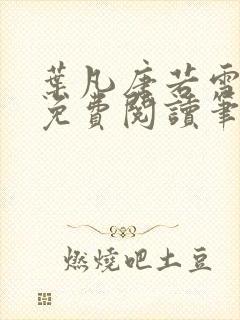 葉凡唐若雪
免費閱讀筆
燃燒吧土豆